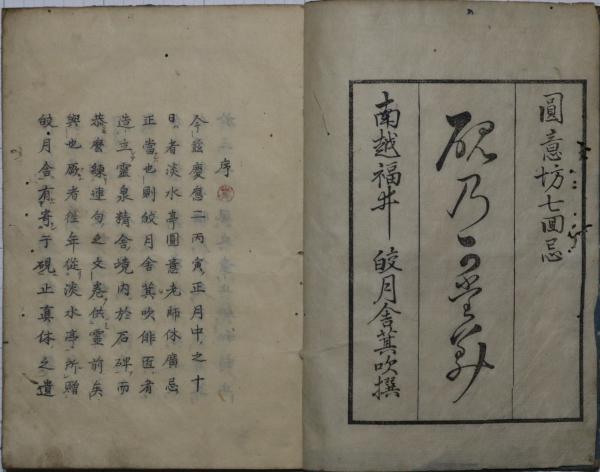 圓意坊七回忌
硯乃可堂美
南越福井 皎月舎萁吹撰
序
今茲慶應二丙寅正月中之十
日者淡水亭圓意老師休廣忌
正當也則皎月舎萁吹俳匠者
造立靈泉精舎境内於石碑而
恭麼練連句之文巻供靈前矣
輿也厥者往年從淡水亭所贈
皎月舎有寄于硯止真休之遺